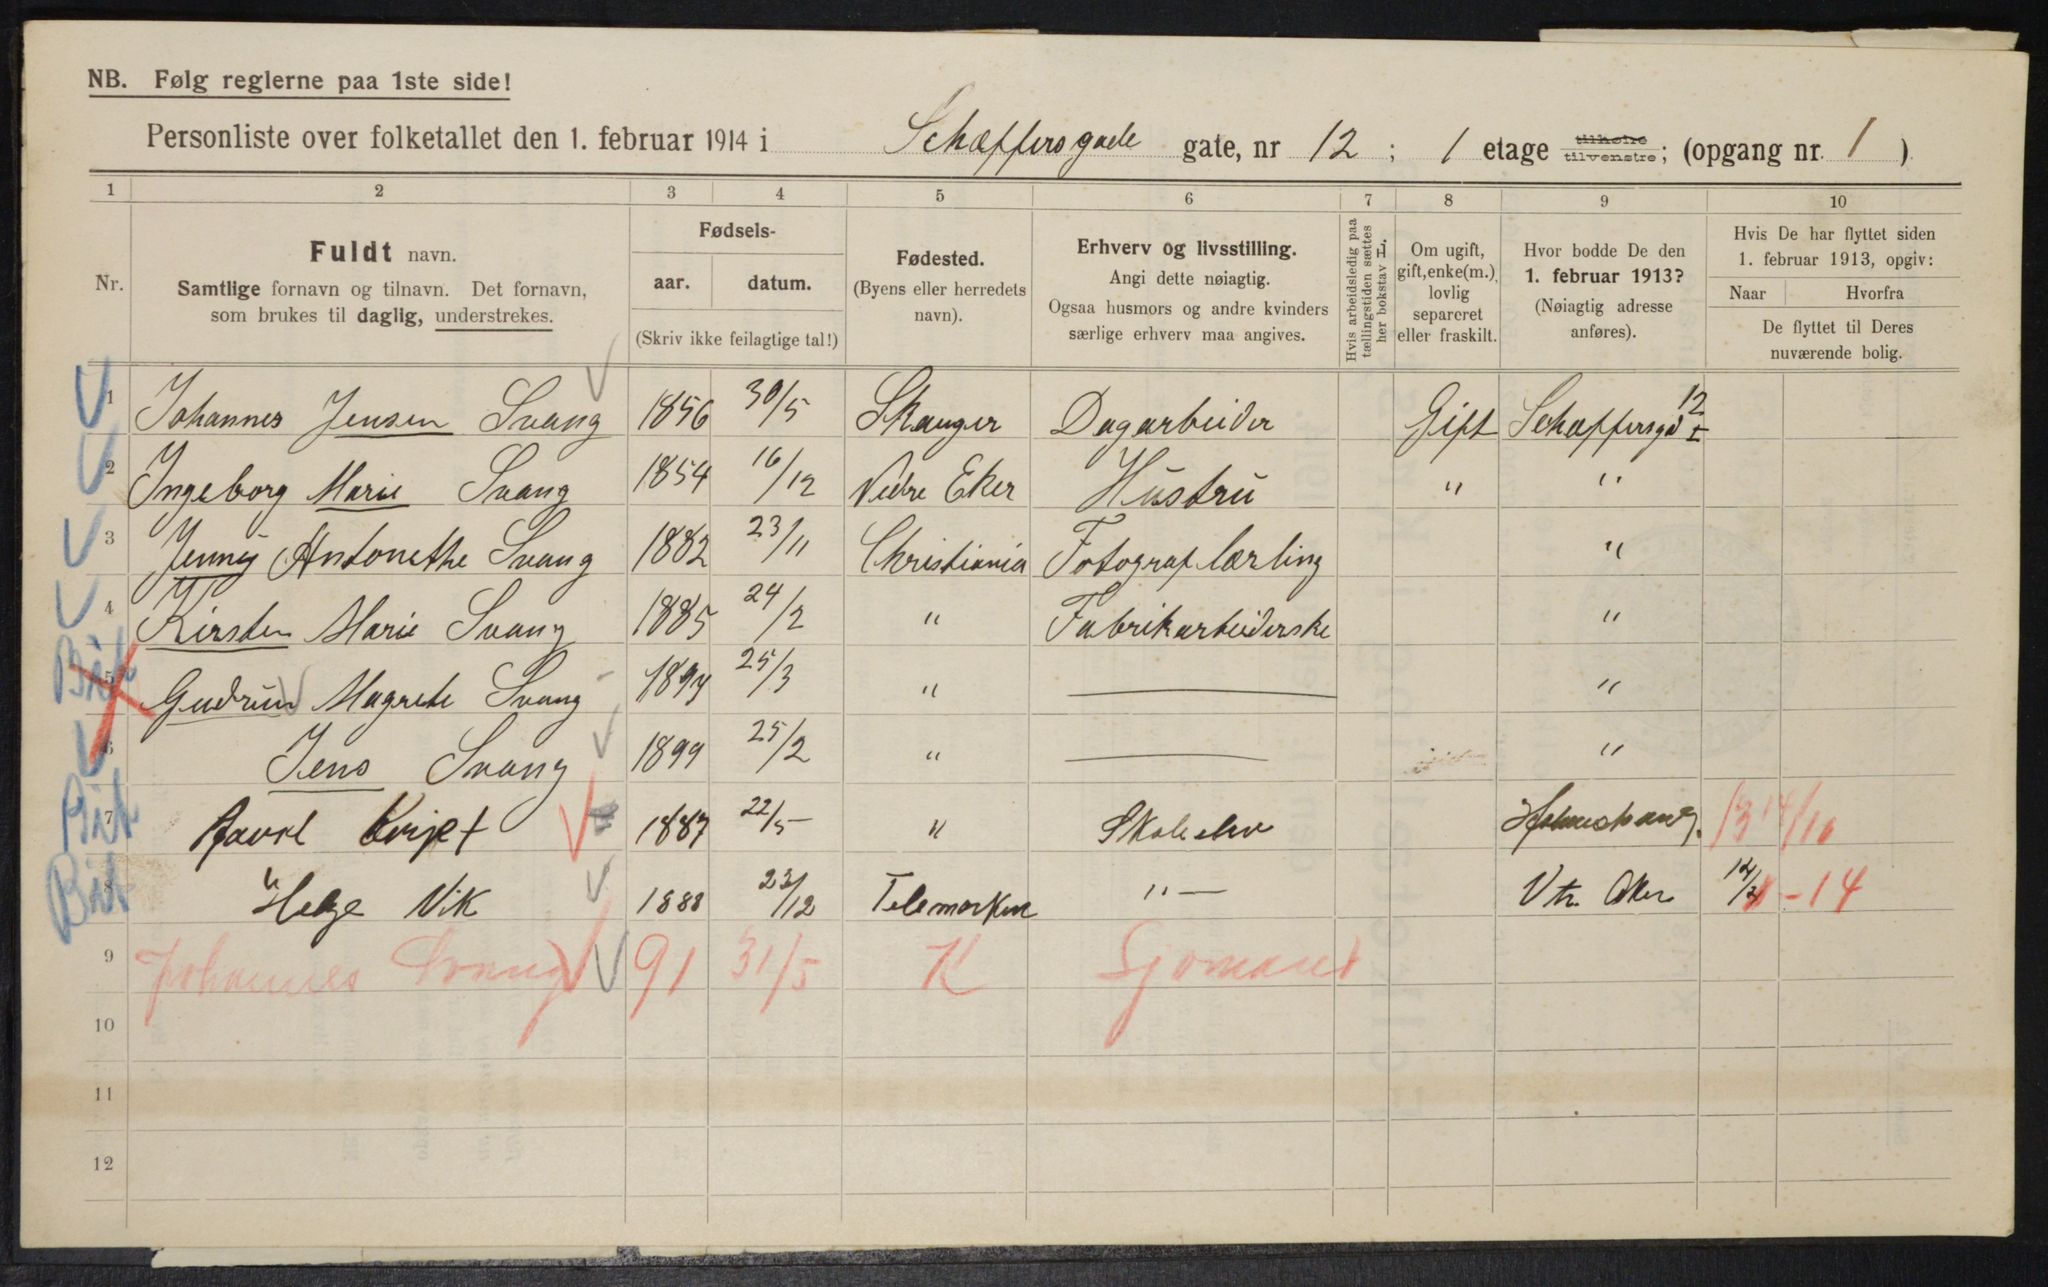 NB. Følg reglerne paa 1ste side!
Personliste over folketallet den 1. februar 1914 i Schæffersgade gate, nr 12 ; 1 etage tilhøire tilvenstre; (opgang nr. 1 )
1 2 3 4 5 6 7 8 9 10
Nr.
Fuldt navn.
Samtlige fornavn og tilnavn. Det fornavn,
som brukes til daglig, understrekes.
Fødsels-
aar. datum.
(Skriv ikke feilagtige tal!)
Fødested.
(Byens eller herredets
navn).
Erhverv og livsstilling.
Angi dette nøiagtig.
Ogsaa husmors og andre kvinders
særlige erhverv maa angives.
Hvis arbeidsledig paa
tællingstiden sættes
her bokstav L.
Om ugift,
gift, enke(m.),
lovlig
separeret
eller fraskilt.
Hvor bodde De den
1. februar 1913?
(Nøiagtig adresse
anføres).
Hvis De har flyttet siden
1. februar 1913, opgiv:
Naar Hvorfra
De flyttet til Deres
nuværende bolig.
1 Johannes Jensen Svang 1856 30/5 Skauger Dagarbeider Gift Schæffersgd 12 I
2 Ingeborg Marie Svang 1854 16/12 Nedre Eker Hustru " "
3 Jenny Antonethe Svang 1882 23/11 Christiania Fotograf lærling "
4 Kirsten Marie Svang 1885 24/2 " Fabrikarbeiderske "
5 Gudrun Magrete Svang 1897 25/3 " — "
6 Jens Svang 1899 25/2 " — "
7 1887 22/5 " Skoleelev Holmestrand. 14/10
8 Helge Vik 1888 23/12 Telemarken " — V. Aker - 14
9 Johannes Svang 91 31/5 K Sjømand
10
11
12